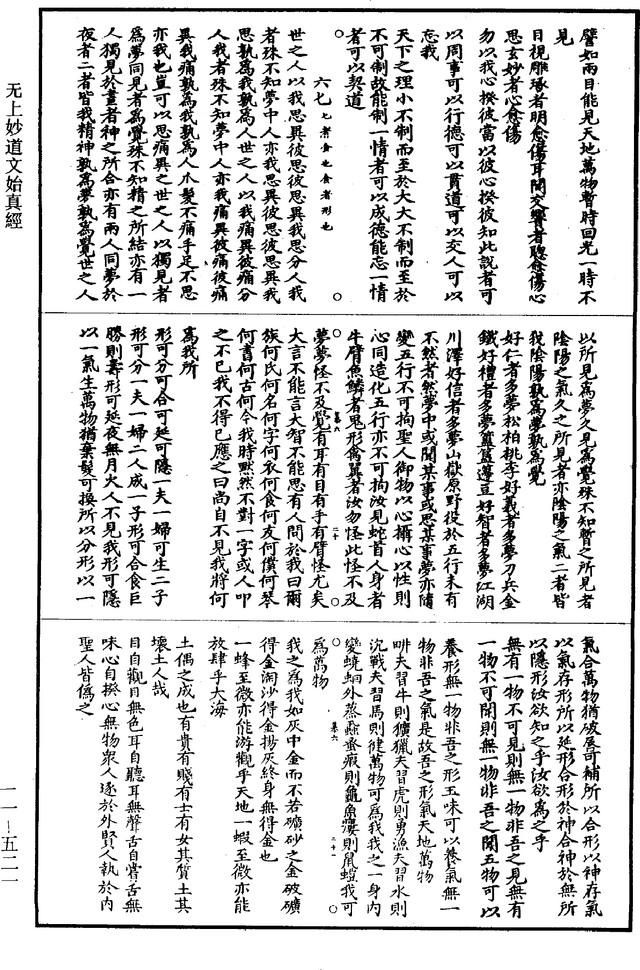 譬如兩目能見天地萬物暫時回光一時不
見
目視雕琢者明愈傷耳聞交響者聰愈傷心
思玄妙者心愈傷
勿以我心揆彼當以彼心揆彼知此說者可
以周事可以行德可以貫道可以交人可以
忘我
天下之理小不制而至於大大不制而至於
不可制故能制一情者可以成德能忘一情
者可以契道
六七 七者食也食者形也
世之人以我思異彼思彼思異我思分人我
者殊不知夢中人亦我思異彼思彼思異我
思孰為我孰為人世之人以我痛異彼痛分
人我者殊不知夢中人亦我痛異彼痛彼痛
異我痛孰為我孰為人爪髮不痛手足不思
亦我也豈可以思痛異之世之人以獨見者
為夢同見者為覺殊不知精之所結亦有一
人獨見於晝者神之所合亦有兩人同夢於
夜者二者皆我精神孰為夢孰為覺世之人
以所見為夢久見為覺殊不知暫之所見者
陰陽之氣久之所見者亦陰陽之氣二者皆
我陰陽孰為夢孰為覺
好仁者多夢松柏桃李好義者多夢刀兵金
鐵好禮者多夢簠簋籩豆好智者多夢江湖
川澤好信者多夢山嶽原野役於五行未有
不然者然夢中或聞某事或思某事夢亦隨
變五行不可拘聖人御物以心攝心以性則
心同造化五行亦不可拘汝見蛇首人身者
牛臂魚鱗者鬼形禽翼者汝勿怪此怪不及
夢夢怪不及覺有耳有目有手有臂怪尤矣
大言不能言大智不能思有人問於我曰爾
族何氏何名何字何衣何食何友何僕何琴
何書何古何今我時默然不對一字或人叩
之不已我不得已應之曰尚自不見我將何
為我所
形可分可合可延可隱一夫一婦可生二子
形可分一夫一婦二人成一子形可合食巨
勝則壽形可延夜無月火人不見我形可隱
以一氣生萬物猶棄髮可換所以分形以一
氣合萬物猶破屋可補所以合形以神存氣
以氣存形所以延形合形於神合神於無所
以隱形汝欲知之乎汝欲為之乎
無有一物不可見則無一物非吾之見無有
一物不可聞則無一物非吾之聞五物可以
養形無一物非吾之形五味可以養氣無一
物非吾之氣是故吾之形氣天地萬物
畊夫習牛則獷獵夫習虎則勇漁夫習水則
沉戰夫習馬則健萬物可為我我之一身內
變蟯蛔外蒸蝨蚤瘕則龜魚瘻則鼠螘我可
為萬物
我之為我如灰中金而不若礦砂之金破礦
得金淘沙得金揚灰終身無得金也
一蜂至微亦能游觀乎天地一蝦至微亦能
放肆乎大海
土偶之成也有貴有賤有士有女其質土其
壞土人哉
目自觀目無色耳自聽耳無聲舌自嘗舌無
味心自揆心無物衆人逐於外賢人執於內
聖人皆僞之
无上妙道文始真經
一一－五二一